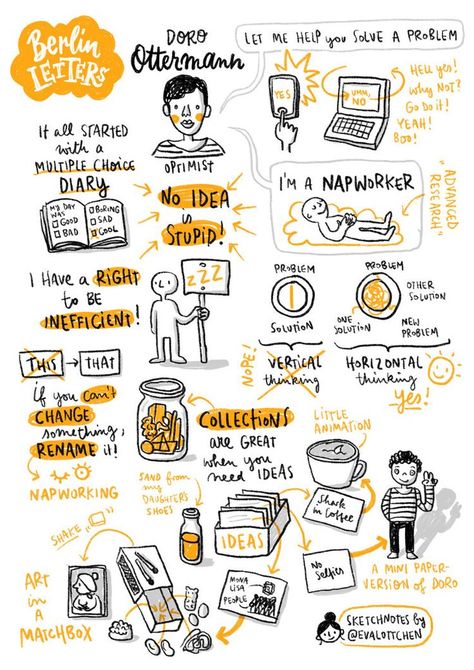 Berlin
LETTERS
DORO
Ottermann
OPTIMIST
LET ME HELP you SOLVE A PROBLEM
YES
UMM,
NO
HELL yes!
Why NOT?
Go do it!
YEAH!
BOO!
It all STARTED
with a
MULTIPLE CHOICE
DIARY
My DAY
WAS
GOOD
BAD
BORING
SAD
COOL
NO IDEA
is
STUPID!
I'M A NAPWORKER
"ADVANCED
RESEARCH"
I HAVE A RIGHT
to BE
INEFFICIENT!
ZZZ
PROBLEM
SOLUTION
PROBLEM
OTHER
SOLUTION
ONE
SOLUTION
NEW
PROBLEM
NOPE!
VERTICAL
thinking
HORIZONTAL
thinking
Yes!
THIS
THAT
if you Can't
CHANGE
something,
RENAME it!
NAPWORKING
COLLECTIONS
are GREAT
when you
NEED IDEAS
LITTLE
ANIMATION
SAND from
my
DAUGHTERS
SHOES
IDEAS
Shark
in Coffee
No
Selfies
MONA
LISA
PEOPLE
A MINI PAPER-
VERSION of DORO
SHAKE
ART
in a
MATCHBOX
SKETCHNOTES by
@EVALOTTCHEN